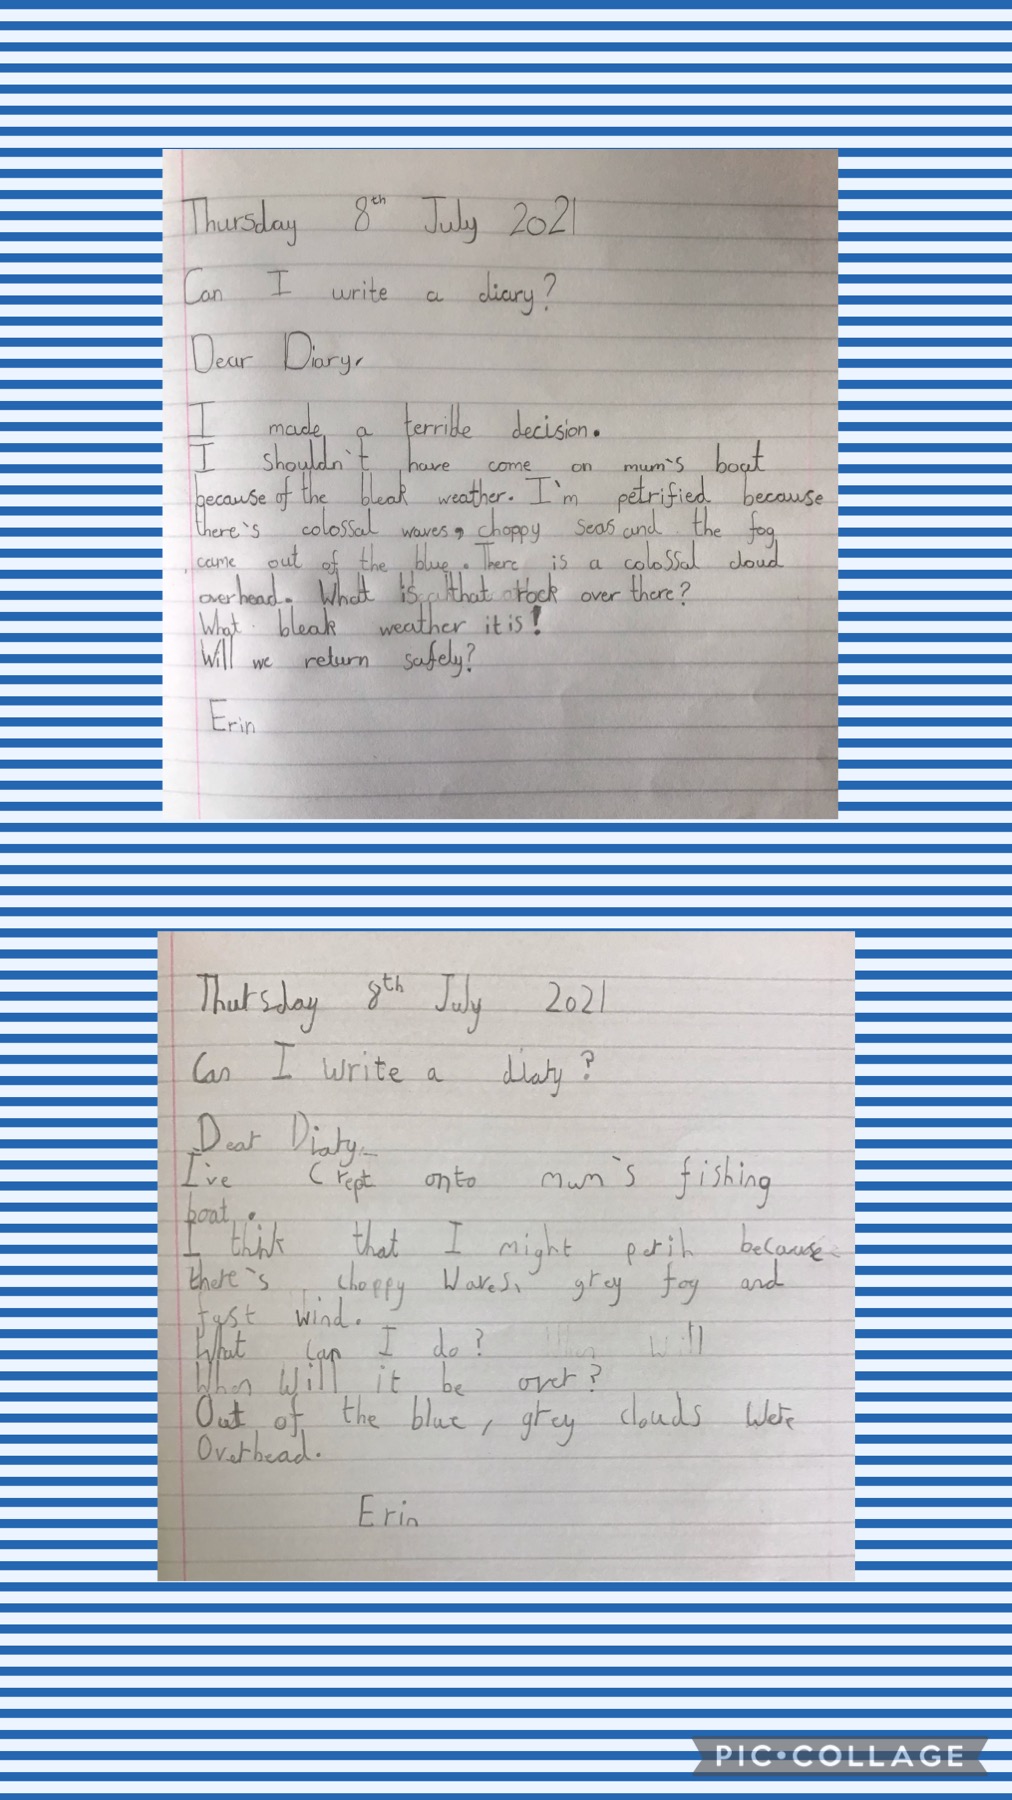 Thursday 8th July 2021
Can I write a diary?
Dear Diary,
I made a terrible decision.
I shouldn't have come on mum's boat
because of the bleak weather. I'm petrified because
there's colossal waves, choppy seas and the fog
came out of the blue. There is a colossal cloud
overhead. What is that rock over there?
What bleak weather it is!
Will we return safely?
Erin
Thursday 8th July 2021
Can I write a diary?
Dear Diary,
I've crept onto mum's fishing
boat.
I think that I might perih because
there's choppy waves, grey fog and
fast wind.
What can I do? will
When will it be over?
Out of the blue, grey clouds were
overhead.
Erin
PIC•COLLAGE